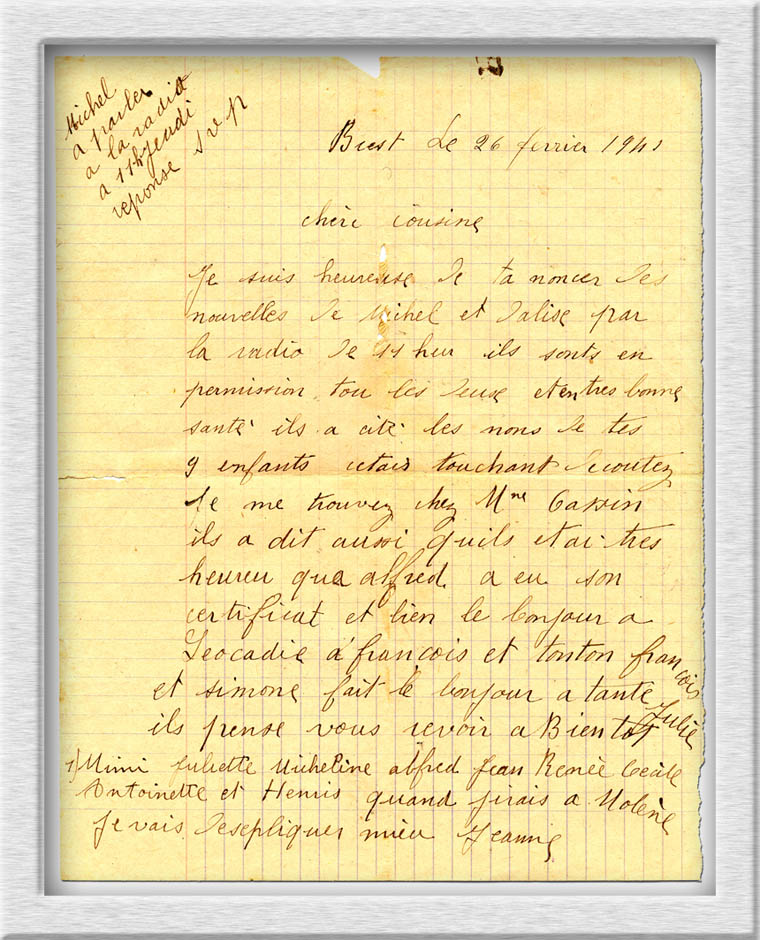 Michel
a parler
a la radio
a 11h jeudi
reponse S V P
Brest Le 26 fevrier 1941
chère cousine
Je suis heureuse de ta noncer des
nouvelles de Michel et dalise par
la radio de 11 heur ils sonts en
permission tou les deuse et en tres bonne
santé ils a cité les nons de tes
9 enfants cetais touchant decoutez
Je me trouvez chez Mme Cassin
ils a dit aussi quils etai tres
heureu que alfred a eu son
certificat et bien le bonjour a
Leocadie a francois et tonton francois
et simone fait le bonjour a tante Julie
ils pense vous revoir a Bientot
Mimi Juliette Micheline alfred Jean Renée Cecile
Antoinette et Henris quand jirais a Molène
Je vais desepliquer mieu Jeanne